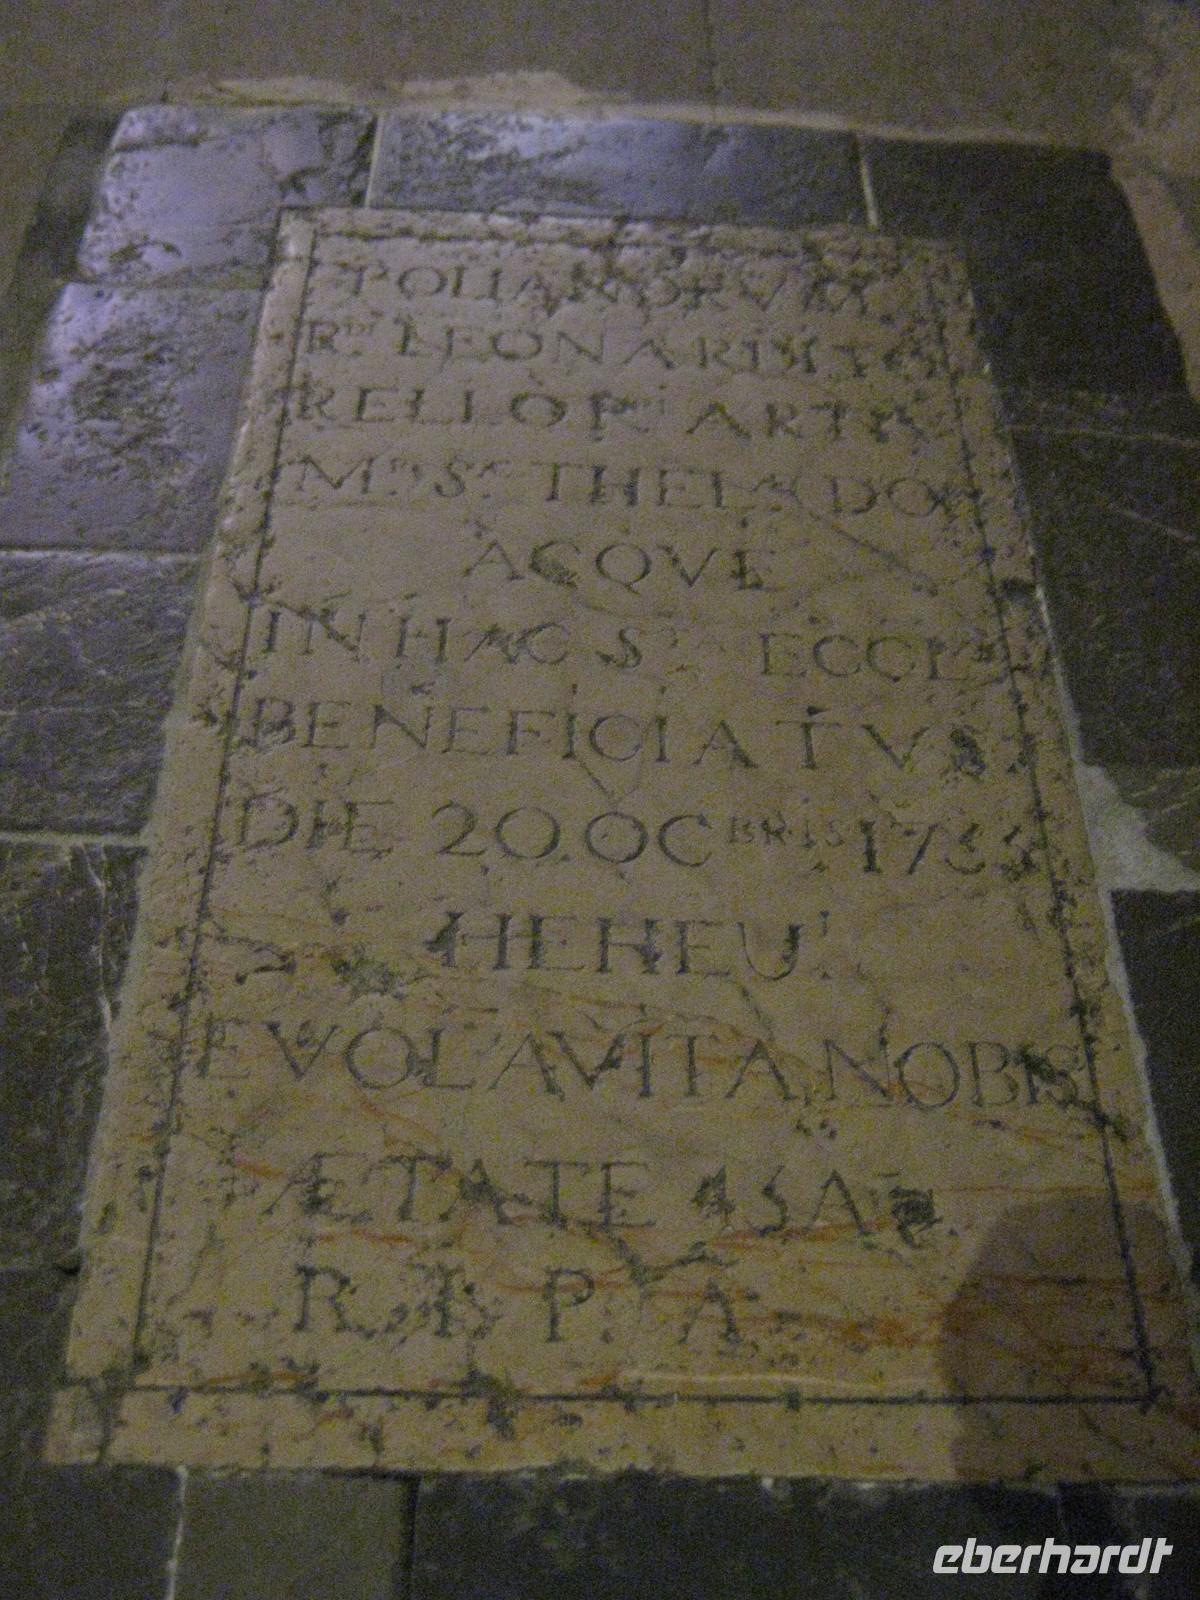 POLIANORVM
R.DI LEONARDI TO
RELLO ARTI
THEL DO
ACQVE
IN HAC S. ECCL
BENEFICIATVS
DIE 20. OCBRIS 1733
HEHEU!
EVOLAVIT A NOBIS
ÆTATE 43 A
R. I. P. A
eberhardt